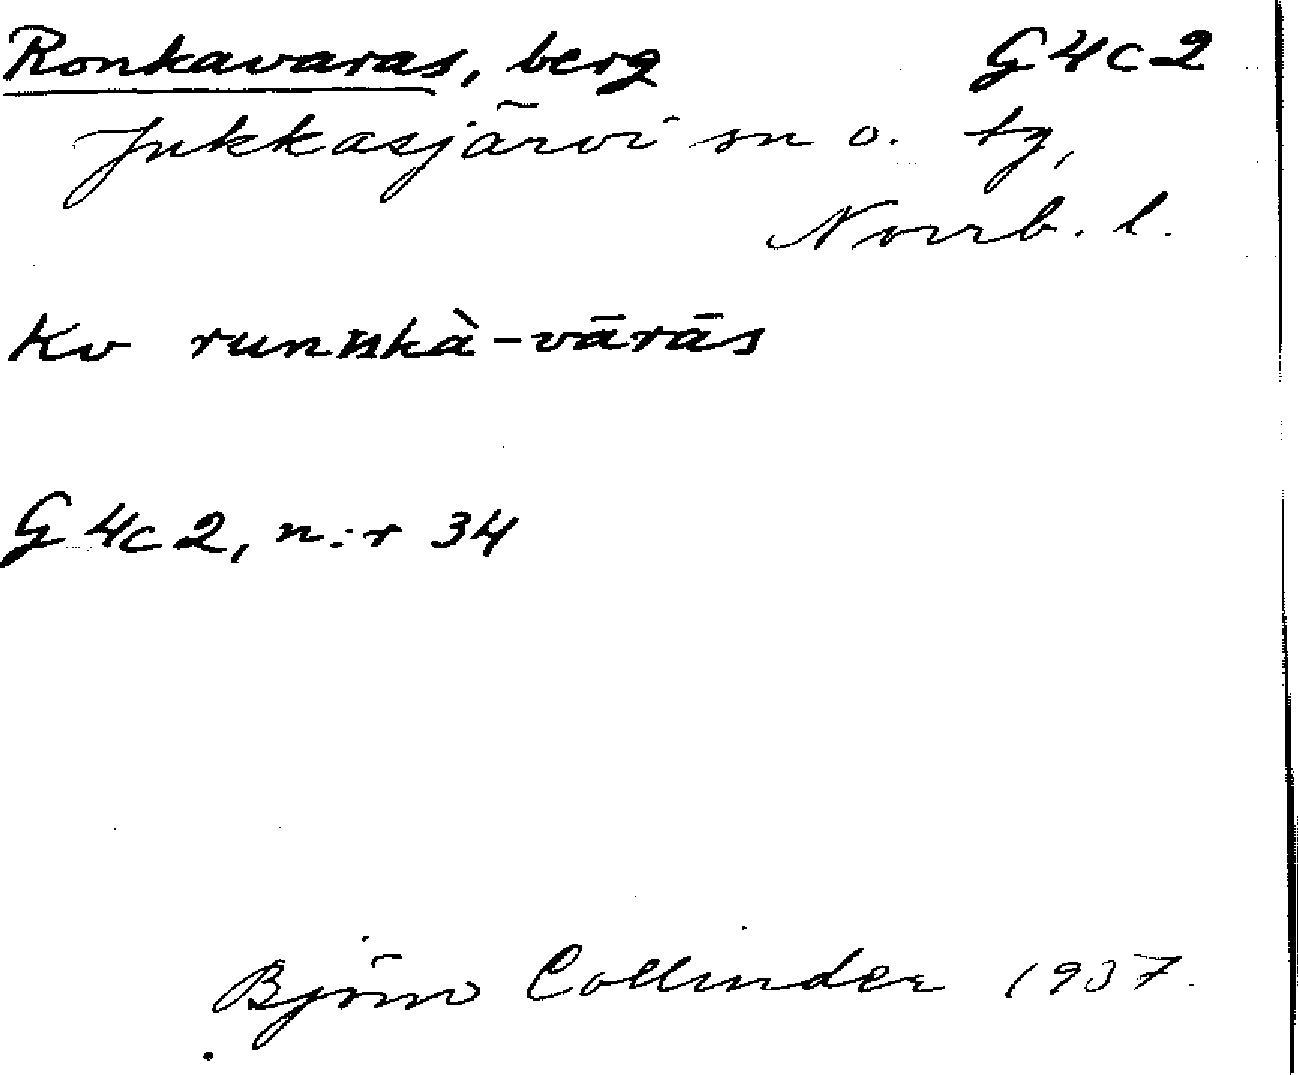 Ronkavaras, berg G4c2
Jukkasjärvi sn o. tg,
Norrb. l.
Kv runnkà-vārās
G4c2, n:r 34
Björn Collinder 1937.